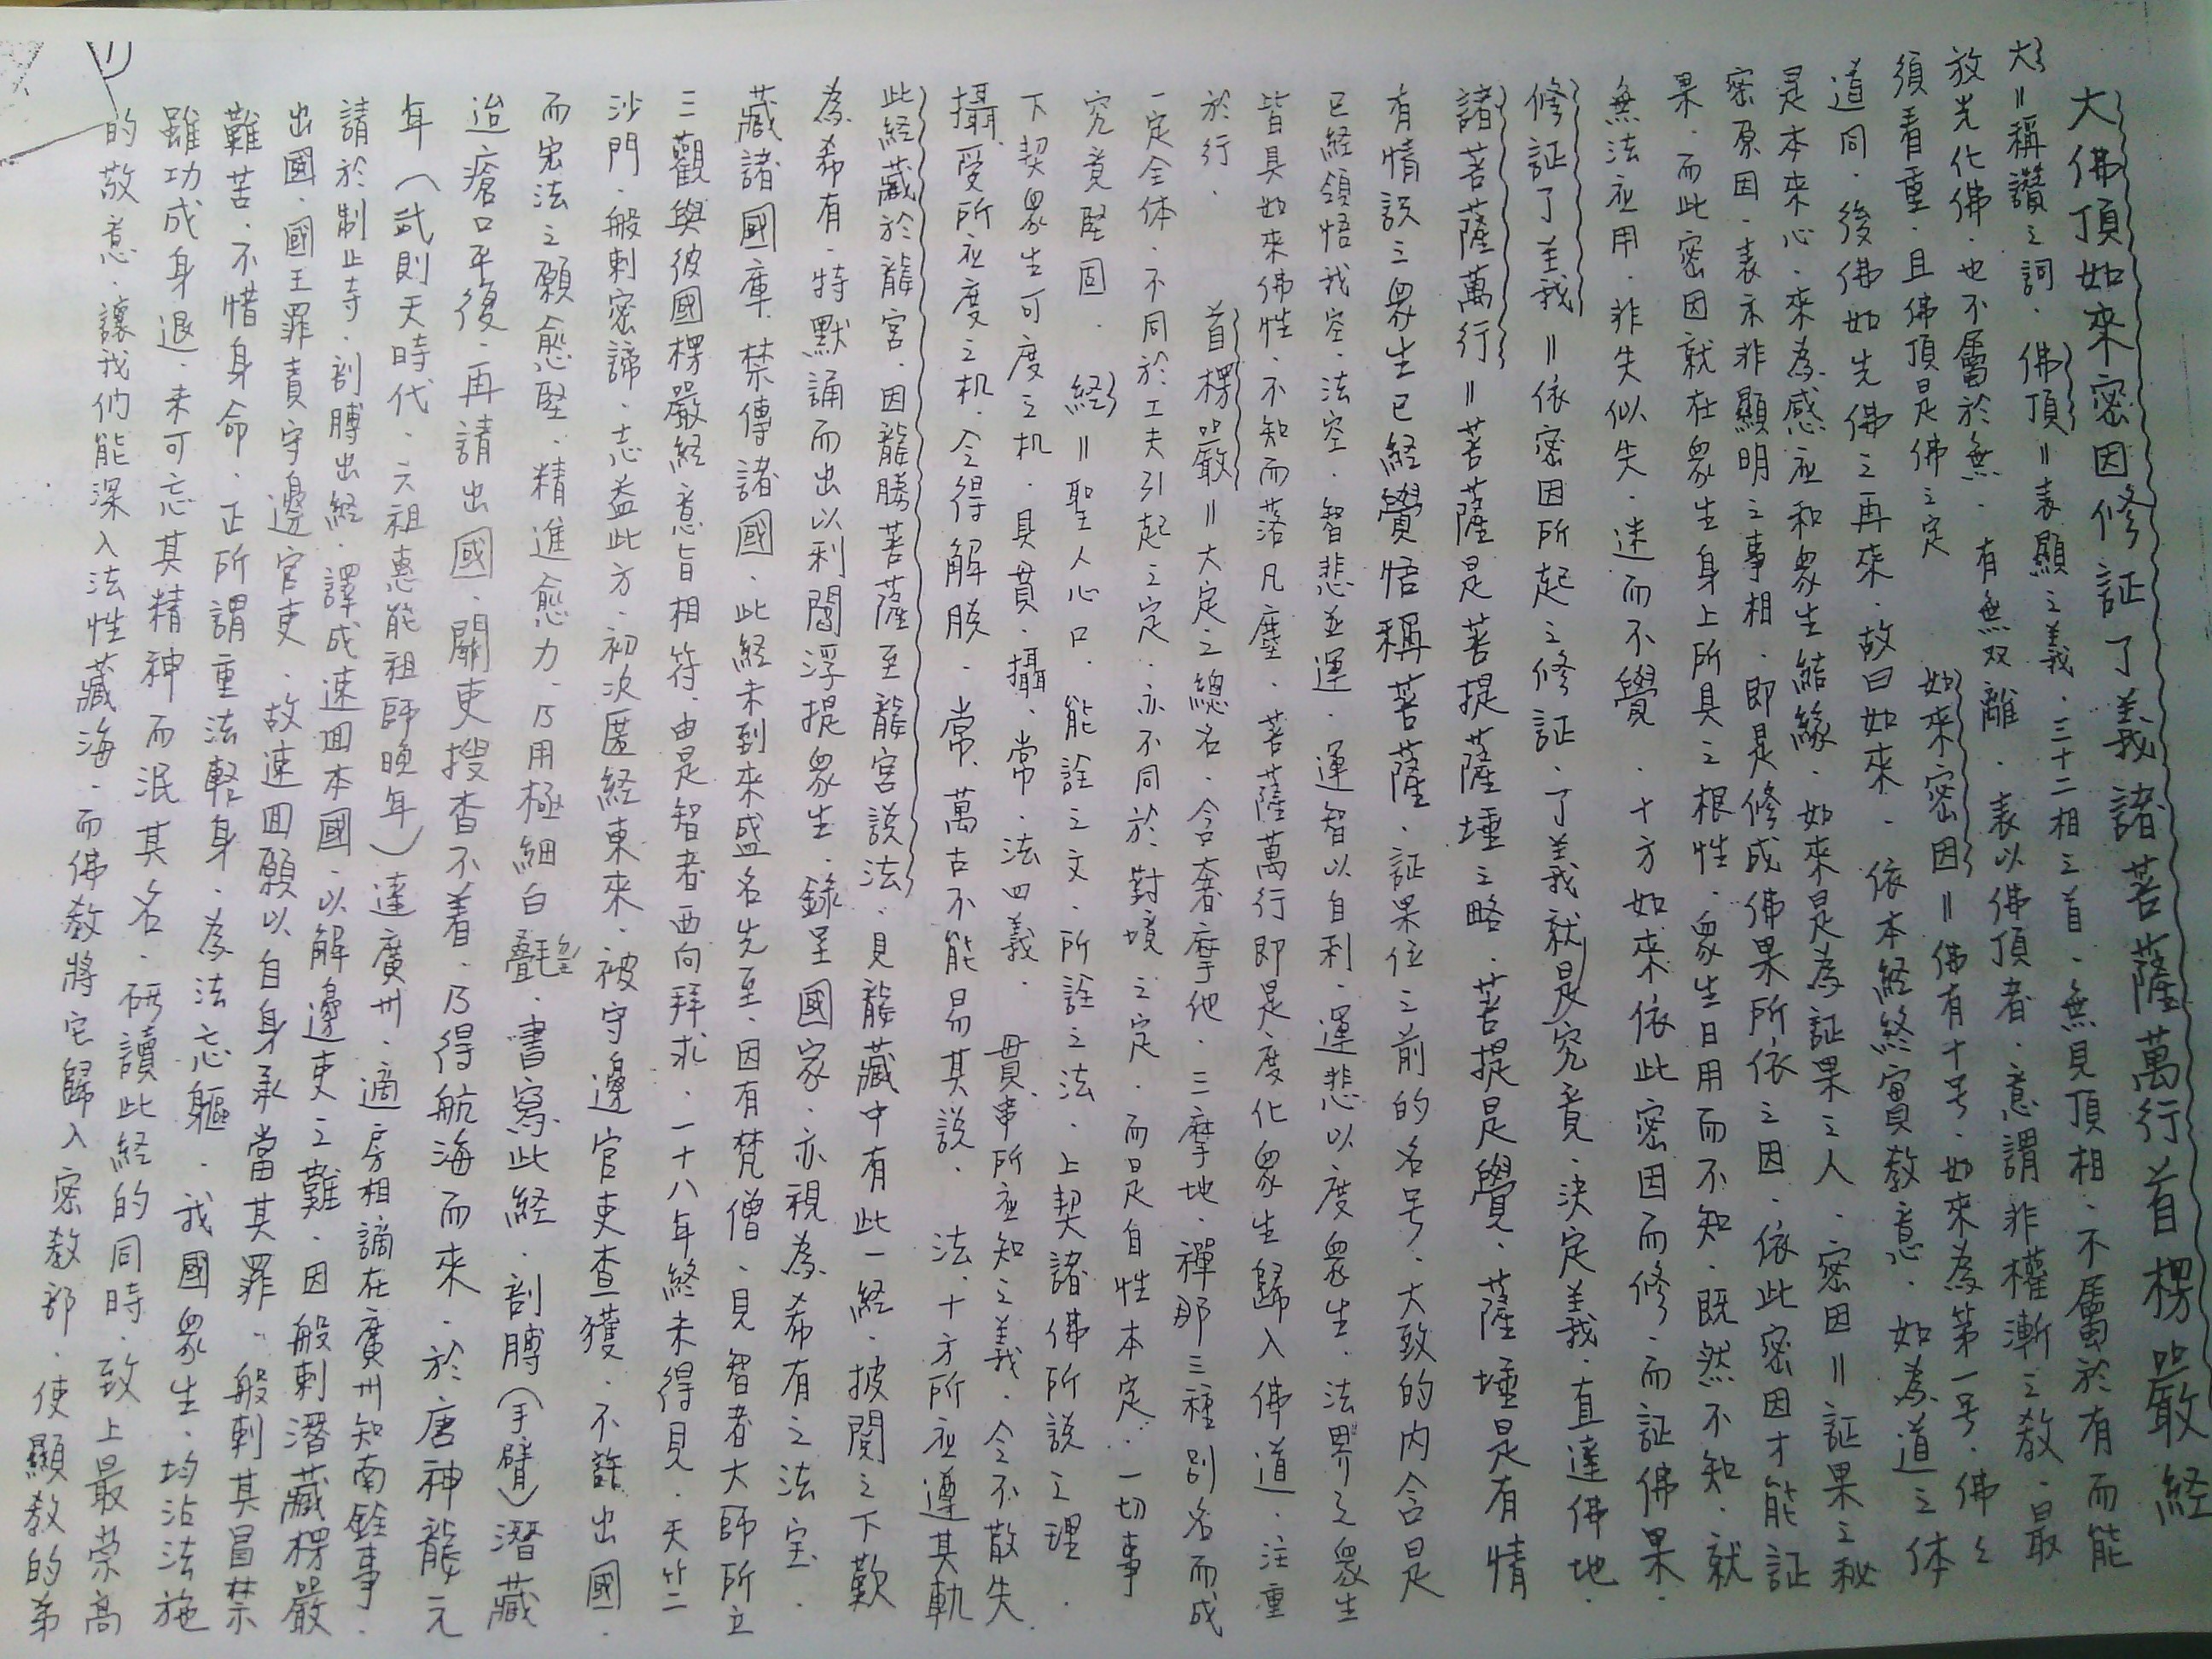 大佛頂如來密因修証了義諸菩薩萬行首楞嚴経
大=稱讚之詞．佛頂=表顯之義．三十二相之首．無見頂相．不屬於有而能
放光化佛．也不屬於無．有無双離．表以佛頂者．意謂非權漸之教．最
須看重．且佛頂是佛之定　如來密因=佛有十号．如來為第一号．佛々
道同．後佛如先佛之再來．故曰如來．依本経終實教意．如為道之体
是本來心．來為感应和衆生結緣．如來是為証果之人．密因=証果之秘
密原因．表示非顯明之事相．即是修成佛果所依之因．依此密因才能証
果．而此密因就在衆生身上所具之根性．衆生日用而不知．既然不知．就
無法应用．非失似失．迷而不覺．十方如來依此密因而修．而証佛果．
修証了義=依密因所起之修証．了義就是究竟．決定義．直達佛地．
諸菩薩萬行=菩薩是菩提薩埵之略．菩提是覺．薩埵是有情
有情説之衆生已経覺悟稱菩薩．証果位之前的名号．大致的内含是
已経領悟我空．法空．智悲並運．運智以自利．運悲以度衆生．法界之衆生
皆具如來佛性．不知而落凡塵．菩薩萬行即是度化衆生歸入佛道．注重
於行．　首楞嚴=大定之總名．含奢摩他．三摩地．禪那三種別名而成
一定全体．不同於工夫引起之定．亦不同於對境之定．而是自性本定．一切事
究竟堅固．　経=聖人心口．能詮之文．所詮之法．上契諸佛所説之理．
下契衆生可度之机．具貫．攝．常．法四義．　貫串所应知之義．令不散失．
攝受所应度之机．令得解脱．常．萬古不能易其説．　法．十方所应遵其軌
此経藏於龍宮．因龍勝菩薩至龍宮説法．見龍藏中有此一経．披閱之下歎
為希有．特默誦而出以利閻浮提衆生．錄呈國家．亦視為希有之法宝．
藏諸國庫．禁傳諸國．此経未到來盛名先至．因有梵僧．見智者大師所立
三觀與彼國楞嚴経意旨相符．由是智者西向拜求．一十八年終未得見．天竺
沙門．般剌密諦．志益此方．初次匿経東來．被守邊官吏查獲．不許出國．
而宏法之願愈堅．精進愈力．乃用極細白㲲．書寫此経．剖膊(手臂)潛藏
迨瘡口平復．再請出國．關吏搜查不着．乃得航海而來．於唐神龍元
年(武則天時代．六祖惠能祖師晚年)達廣州．適房相謫在廣州知南銓事．
請於制止寺．剖膊出経．譯成速囬本國．以解邊吏之難．因般剌潛藏楞嚴
出國．國王罪責守邊官吏．故速囬願以自身承當其罪．般剌其冒禁
難苦．不惜身命．正所謂重法軽身．為法忘軀．我國衆生．均沾法施
雖功成身退．未可忘其精神而泯其名．研讀此経的同時．致上最崇高
的敬意．讓我們能深入法性藏海．而佛教將它歸入密教部．使顯教的弟